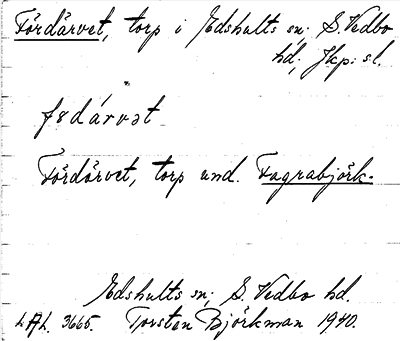 Fördärvet, torp i Edshults sn; S. Vedbo
hd; Jkp: sl.
f8dárvət
Fördärvet, torp und. Fagrabjörk.
Edshults sn; S. Vedbo hd.
LAL. 3665. Torsten Björkman 1940.